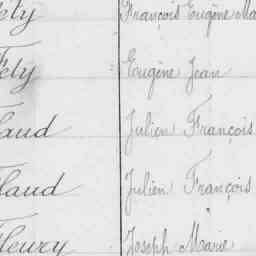 Fély François Eugène Ma
Fély Eugène Jean
Flaud Julien François
Flaud Julien François
Fleury Joseph Marie